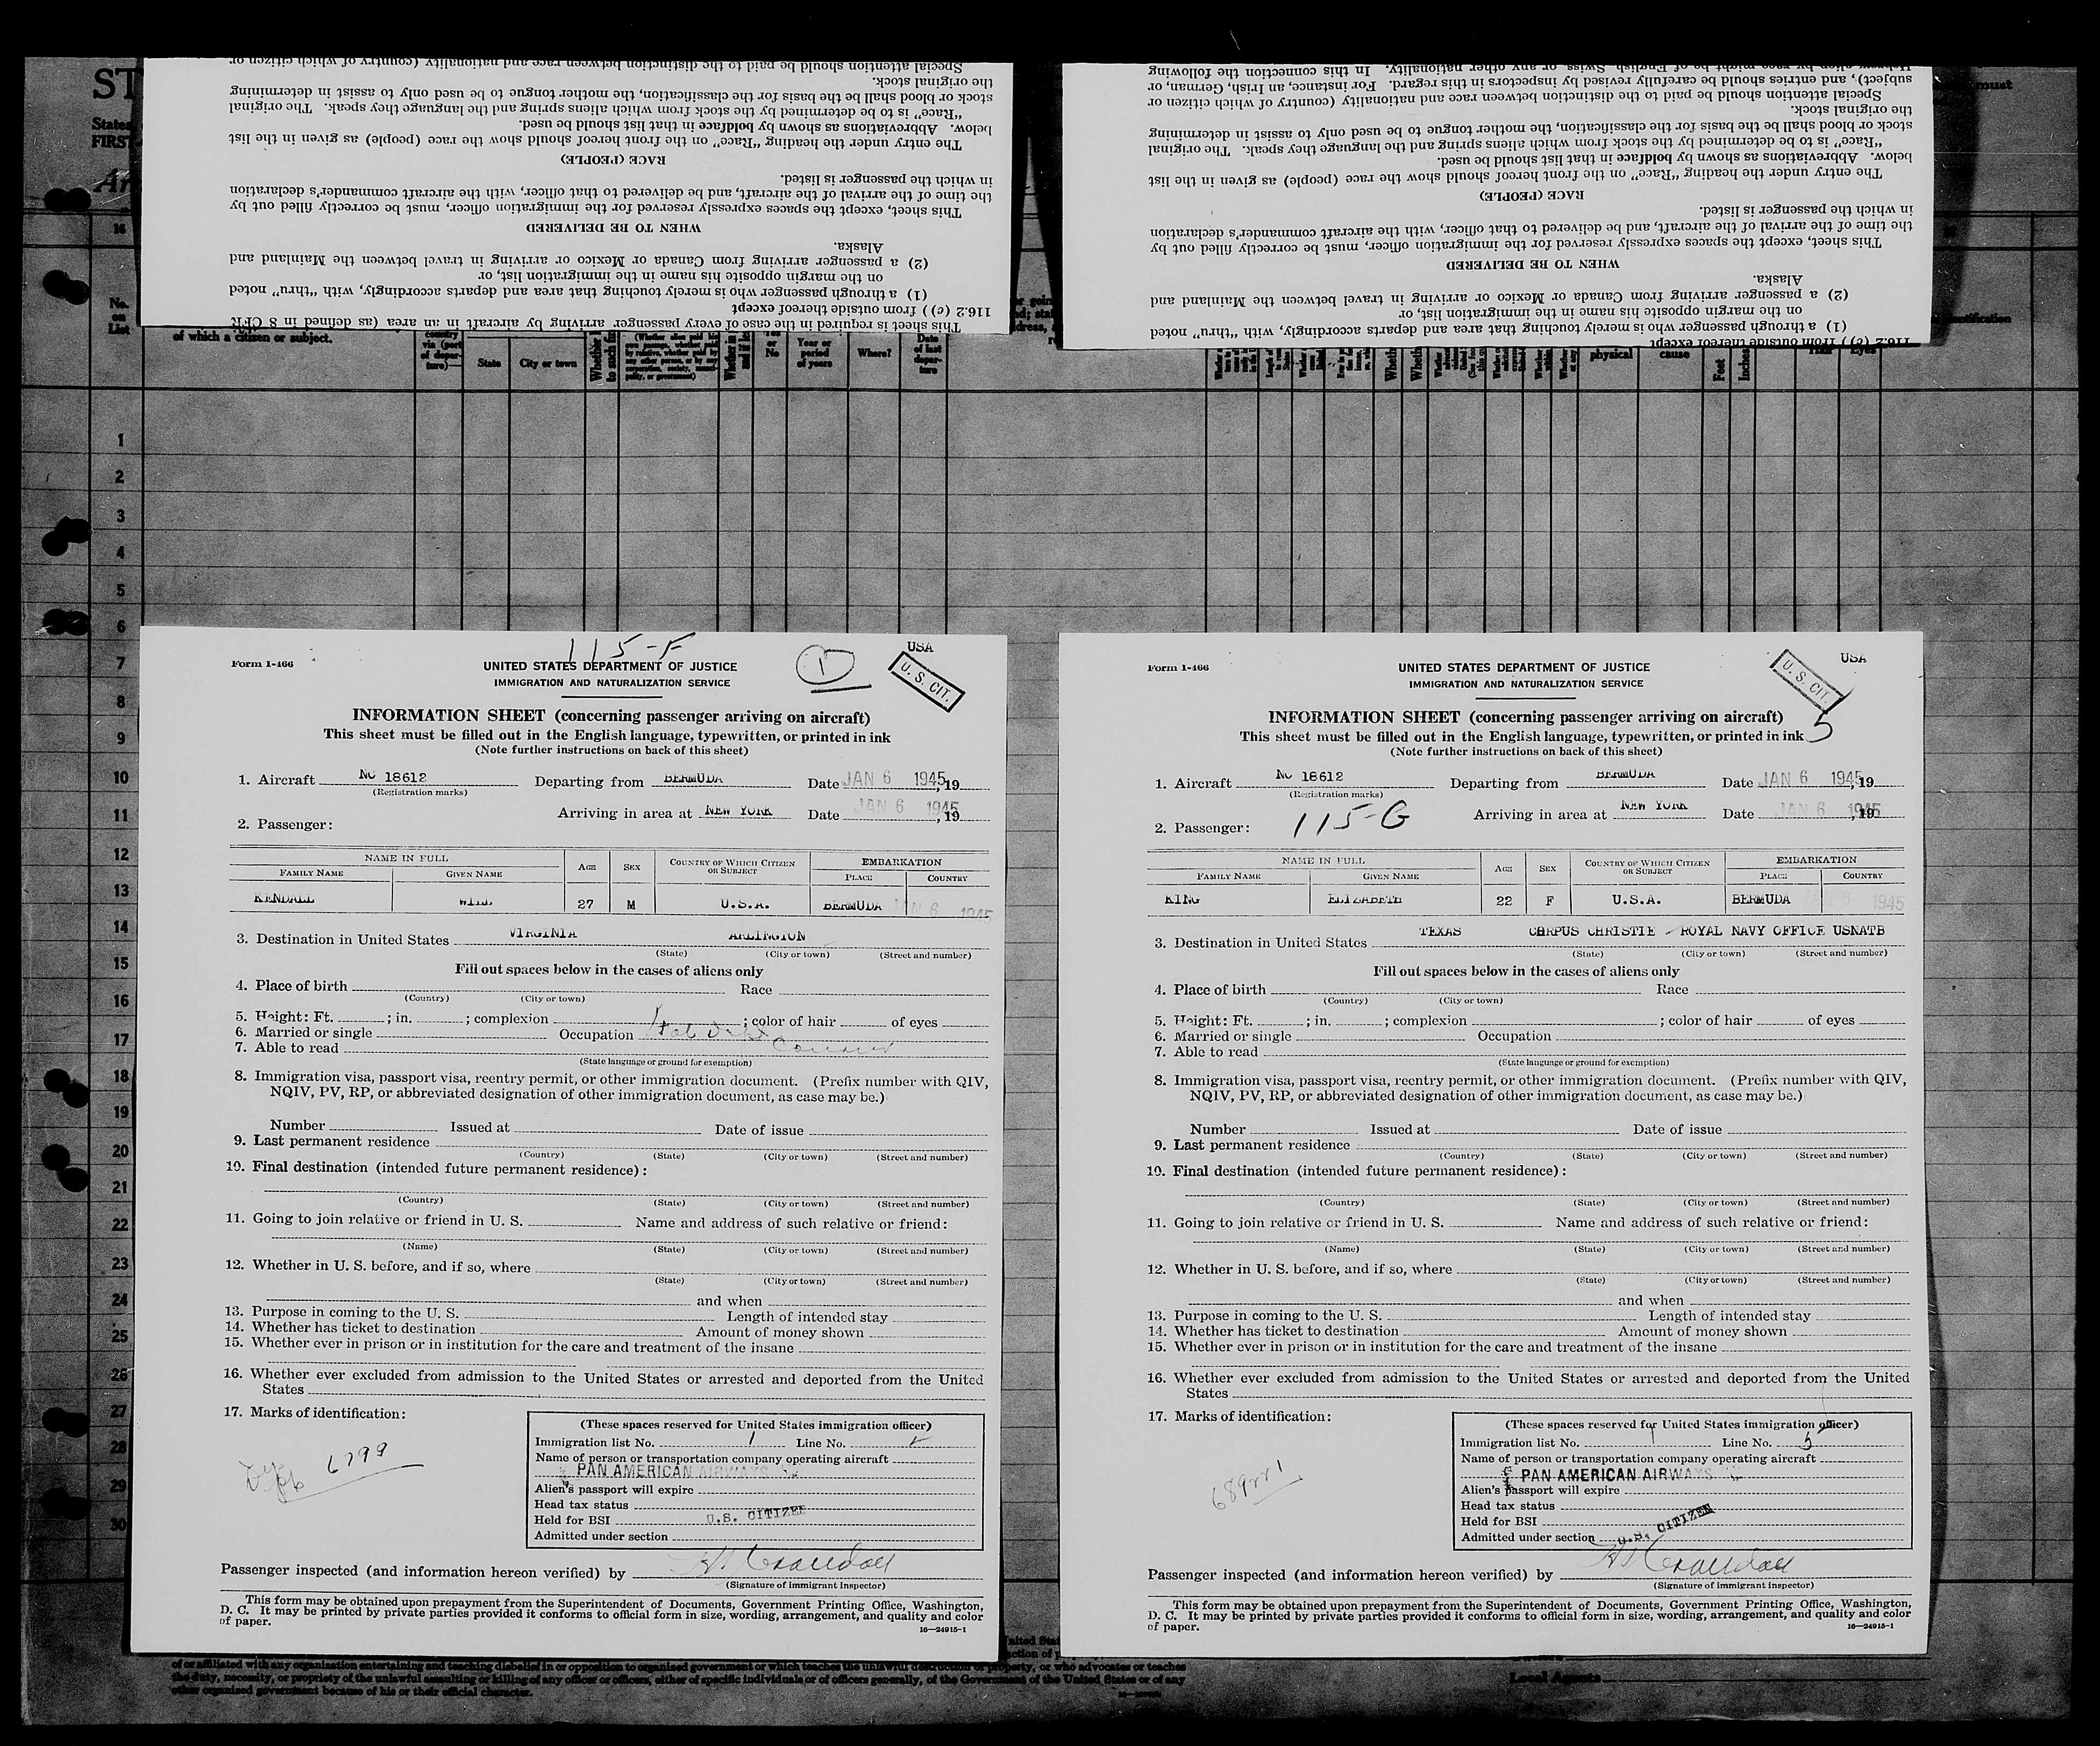 Special attention should be paid to the distinction between race and nationality (country of which citizen or
the original stock.
stock or blood shall be the basis for the classification, the mother tongue to be used only to assist in determining
"Race" is to be determined by the stock from which aliens spring and the language they speak. The original
below. Abbreviations as shown by boldface in that list should be used.
The entry under the heading "Race" on the front hereof should show the race (people) as given in the list
RACE (PEOPLE)
in which the passenger is listed.
the time of the arrival of the aircraft, and be delivered to that officer, with the aircraft commander's declaration
This sheet, except the spaces expressly reserved for the immigration officer, must be correctly filled out by
WHEN TO BE DELIVERED
Alaska.
(2) a passenger arriving from Canada or Mexico or arriving in travel between the Mainland and
on the margin opposite his name in the immigration list, or
(1) a through passenger who is merely touching that area and departs accordingly, with "thru" noted
116.2 (c)) from outside thereof except
This sheet is required in the case of every passenger arriving by aircraft in an area (as defined in 8 CFR
English, Swiss, or any other nationality. In this connection the following
subject), and entries should be carefully revised by inspectors in this regard. For instance, an Irish, German, or
Special attention should be paid to the distinction between race and nationality (country of which citizen or
the original stock.
stock or blood shall be the basis for the classification, the mother tongue to be used only to assist in determining
"Race" is to be determined by the stock from which aliens spring and the language they speak. The original
below. Abbreviations as shown by boldface in that list should be used.
The entry under the heading "Race" on the front hereof should show the race (people) as given in the list
RACE (PEOPLE)
in which the passenger is listed.
the time of the arrival of the aircraft, and be delivered to that officer, with the aircraft commander's declaration
This sheet, except the spaces expressly reserved for the immigration officer, must be correctly filled out by
WHEN TO BE DELIVERED
Alaska.
(2) a passenger arriving from Canada or Mexico or arriving in travel between the Mainland and
on the margin opposite his name in the immigration list, or
(1) a through passenger who is merely touching that area and departs accordingly, with "thru" noted
116.2 (c)) from outside thereof except
ST
States
FIRST
must
16
No. on List
of which a citizen or subject.
State City or town
Yes or No
Year or period of years
Where?
Date of last departure
physical cause Feet Inches Hair Eyes
1
2
3
4
5
6
7
8
9
10
11
12
13
14
15
16
17
18
19
20
21
22
23
24
25
26
27
28
29
30
115-F
1
USA
U. S. CIT.
Form I-466
UNITED STATES DEPARTMENT OF JUSTICE
IMMIGRATION AND NATURALIZATION SERVICE
INFORMATION SHEET (concerning passenger arriving on aircraft)
This sheet must be filled out in the English language, typewritten, or printed in ink
(Note further instructions on back of this sheet)
1. Aircraft NC 18612 Departing from BERMUDA Date JAN 6 1945, 19
(Registration marks)
Arriving in area at NEW YORK Date JAN 6 1945, 19
2. Passenger:
NAME IN FULL AGE SEX COUNTRY OF WHICH CITIZEN OR SUBJECT EMBARKATION
FAMILY NAME GIVEN NAME PLACE COUNTRY
KENDALL WILL 27 M U.S.A. BERMUDA JAN 6 1945
3. Destination in United States VIRGINIA ARLINGTON
(State) (City or town) (Street and number)
Fill out spaces below in the cases of aliens only
4. Place of birth Race
(Country) (City or town)
5. Height: Ft. ; in. ; complexion ; color of hair of eyes
6. Married or single Occupation
7. Able to read
(State language or ground for exemption)
8. Immigration visa, passport visa, reentry permit, or other immigration document. (Prefix number with QIV,
NQIV, PV, RP, or abbreviated designation of other immigration document, as case may be.)
Number Issued at Date of issue
9. Last permanent residence
(Country) (State) (City or town) (Street and number)
10. Final destination (intended future permanent residence):
(Country) (State) (City or town) (Street and number)
11. Going to join relative or friend in U. S. Name and address of such relative or friend:
(Name) (State) (City or town) (Street and number)
12. Whether in U. S. before, and if so, where
(State) (City or town) (Street and number)
and when
13. Purpose in coming to the U. S. Length of intended stay
14. Whether has ticket to destination Amount of money shown
15. Whether ever in prison or in institution for the care and treatment of the insane
16. Whether ever excluded from admission to the United States or arrested and deported from the United
States
17. Marks of identification:
6799
(These spaces reserved for United States immigration officer)
Immigration list No. 1 Line No.
Name of person or transportation company operating aircraft
PAN AMERICAN AIRWAYS
Alien's passport will expire
Head tax status
Held for BSI U.S. CITIZEN
Admitted under section
Passenger inspected (and information hereon verified) by
(Signature of immigrant inspector)
This form may be obtained upon prepayment from the Superintendent of Documents, Government Printing Office, Washington,
D. C. It may be printed by private parties provided it conforms to official form in size, wording, arrangement, and quality and color
of paper.
16—24915-1
USA
U. S. CIT.
5
Form I-466
UNITED STATES DEPARTMENT OF JUSTICE
IMMIGRATION AND NATURALIZATION SERVICE
INFORMATION SHEET (concerning passenger arriving on aircraft)
This sheet must be filled out in the English language, typewritten, or printed in ink
(Note further instructions on back of this sheet)
1. Aircraft NC 18612 Departing from BERMUDA Date JAN 6 1945, 19
(Registration marks)
Arriving in area at NEW YORK Date JAN 6 1945, 19
2. Passenger: 115-G
NAME IN FULL AGE SEX COUNTRY OF WHICH CITIZEN OR SUBJECT EMBARKATION
FAMILY NAME GIVEN NAME PLACE COUNTRY
KING ELIZABETH 22 F U.S.A. BERMUDA JAN 6 1945
3. Destination in United States TEXAS CORPUS CHRISTIE - ROYAL NAVY OFFICE USNATB
(State) (City or town) (Street and number)
Fill out spaces below in the cases of aliens only
4. Place of birth Race
(Country) (City or town)
5. Height: Ft. ; in. ; complexion ; color of hair of eyes
6. Married or single Occupation
7. Able to read
(State language or ground for exemption)
8. Immigration visa, passport visa, reentry permit, or other immigration document. (Prefix number with QIV,
NQIV, PV, RP, or abbreviated designation of other immigration document, as case may be.)
Number Issued at Date of issue
9. Last permanent residence
(Country) (State) (City or town) (Street and number)
10. Final destination (intended future permanent residence):
(Country) (State) (City or town) (Street and number)
11. Going to join relative or friend in U. S. Name and address of such relative or friend:
(Name) (State) (City or town) (Street and number)
12. Whether in U. S. before, and if so, where
(State) (City or town) (Street and number)
and when
13. Purpose in coming to the U. S. Length of intended stay
14. Whether has ticket to destination Amount of money shown
15. Whether ever in prison or in institution for the care and treatment of the insane
16. Whether ever excluded from admission to the United States or arrested and deported from the United
States
17. Marks of identification:
689221
(These spaces reserved for United States immigration officer)
Immigration list No. 1 Line No. 5
Name of person or transportation company operating aircraft
PAN AMERICAN AIRWAYS
Alien's passport will expire
Head tax status
Held for BSI
Admitted under section U.S. CITIZEN
Passenger inspected (and information hereon verified) by
(Signature of immigrant inspector)
This form may be obtained upon prepayment from the Superintendent of Documents, Government Printing Office, Washington,
D. C. It may be printed by private parties provided it conforms to official form in size, wording, arrangement, and quality and color
of paper.
16—24915-1
of or affiliated with any organization entertaining and teaching disbelief in or opposition to organized government or which teaches the unlawful destruction of property, or who advocates or teaches
the duty, necessity, or propriety of the unlawful assaulting or killing of any officer or officers, either of specific individuals or of officers generally, of the Government of the United States or of any
other organized government because of his or their official character.
Local Agents